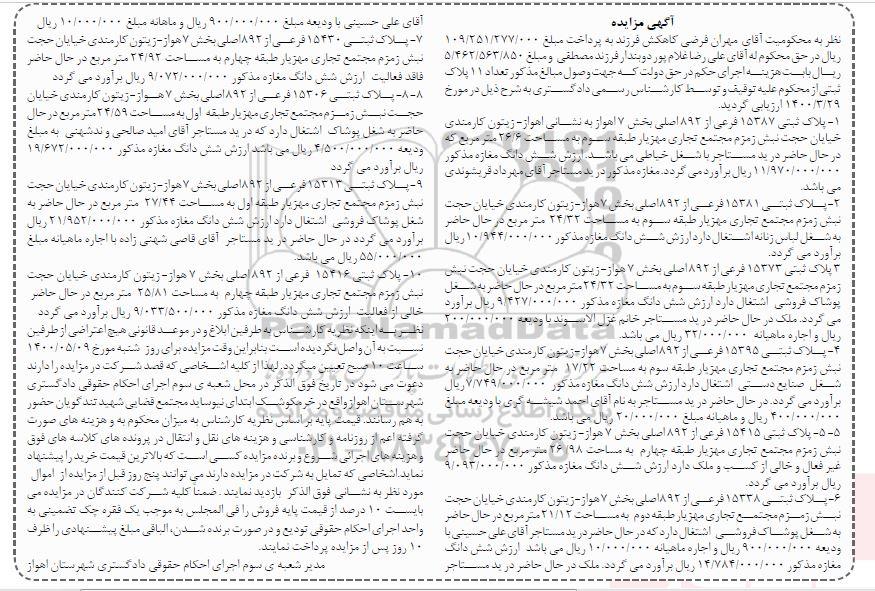 آگهی مزایده
نظر به محکومیت آقای مهران فرضی کاهکش فرزند به پرداخت مبلغ ۱۰۹/۲۵۱/۲۷۷/۰۰۰
ریال در حق محکوم له آقای علی رضا غلام پور دوبندار فرزند مصطفی و مبلغ ۵/۴۶۲/۵۶۳/۸۵۰
ریال بابت هزینه اجرای حکم در حق دولت که جهت وصول مبالغ مذکور تعداد ۱۱ پلاک
ثبتی از محکوم علیه توقیف و توسط کارشناس رسمی دادگستری به شرح ذیل در مورخ
۱۴۰۰/۳/۲۹ ارزیابی گردید.
۱- پلاک ثبتی ۱۵۳۸۷ فرعی از ۸۹۲ اصلی بخش ۷ اهواز به نشانی اهواز- زیتون کارمندی
خیابان حجت نبش زمزم مجتمع تجاری مهزیار طبقه سوم به مساحت ۲۶/۶ متر مربع که
در حال حاضر در ید مستاجر با شغل خیاطی می باشد. ارزش شش دانگ مغازه مذکور
۱۱/۹۷۰/۰۰۰/۰۰۰ ریال برآورد می گردد. مغازه مذکور در ید مستاجر آقای مهرداد قریشوندی
می باشد.
۲- پلاک ثبتی ۱۵۳۸۱ فرعی از ۸۹۲ اصلی بخش ۷ هواز- زیتون کارمندی خیابان حجت
نبش زمزم مجتمع تجاری مهزیار طبقه سوم به مساحت ۲۴/۳۲ متر مربع در حال حاضر
به شغل لباس زنانه اشتغال دارد ارزش شش دانگ مغازه مذکور ۱۰/۹۴۴/۰۰۰/۰۰۰ ریال
برآورد می گردد.
۳ پلاک ثبتی ۱۵۳۷۳ فرعی از ۸۹۲ اصلی بخش ۷ هواز- زیتون کارمندی خیابان حجت نبش
زمزم مجتمع تجاری مهزیار طبقه سوم به مساحت ۲۴/۳۲ متر مربع در حال حاضر به شغل
پوشاک فروشی اشتغال دارد ارزش شش دانگ مغازه مذکور ۹/۴۲۷/۰۰۰/۰۰۰ ریال برآورد
می گردد. ملک در حال حاضر در ید مستاجر خانم غزل الاسوند با ودیعه ۲۰۰/۰۰۰/۰۰۰
ریال و اجاره ماهیانه ۳۲/۰۰۰/۰۰۰ ریال می باشد.
۴- پلاک ثبتی ۱۵۳۹۵ فرعی از ۸۹۲ اصلی بخش ۷ هواز- زیتون کارمندی خیابان حجت
نبش زمزم مجتمع تجاری مهزیار طبقه سوم به مساحت ۱۷/۲۲ متر مربع در حال حاضر به
شغل صنایع دستی اشتغال دارد ارزش شش دانگ مغازه مذکور ۷/۷۴۹/۰۰۰/۰۰۰ ریال
برآورد می گردد. در حال حاضر در ید مستاجر به نام آقای احمد شیشه گری با ودیعه مبلغ
۴۰۰/۰۰۰/۰۰۰ ریال و ماهیانه مبلغ ۲۰/۰۰۰/۰۰۰ ریال می باشد.
۵-۵- پلاک ثبتی ۱۵۴۱۵ فرعی از ۸۹۲ اصلی بخش ۷ هواز- زیتون کارمندی خیابان حجت
نبش زمزم مجتمع تجاری مهزیار طبقه چهارم به مساحت ۲۶/۹۸ متر مربع در حال حاضر
غیر فعال و خالی از کسب و ملک دارد ارزش شش دانگ مغازه مذکور ۹/۰۹۳/۰۰۰/۰۰۰
ریال برآورد می گردد.
۶- پلاک ثبتی ۱۵۳۳۸ فرعی از ۸۹۲ اصلی بخش ۷ هواز- زیتون کارمندی خیابان حجت
نبش زمزم مجتمع تجاری مهزیار طبقه دوم به مساحت ۲۱/۱۲ متر مربع در حال حاضر
به شغل پوشاک فروشی اشتغال دارد که در حال حاضر در ید مستاجر آقای علی حسینی با
ودیعه ۹۰۰/۰۰۰/۰۰۰ ریال و اجاره ماهیانه ۱۰/۰۰۰/۰۰۰ ریال می باشد ارزش شش دانگ
مغازه مذکور ۱۴/۷۸۴/۰۰۰/۰۰۰ ریال برآورد می گردد. ملک در حال حاضر در ید مستاجر
آقای علی حسینی با ودیعه مبلغ ۹۰۰/۰۰۰/۰۰۰ ریال و ماهانه مبلغ ۱۰/۰۰۰/۰۰۰ ریال
۷- پلاک ثبتی ۱۵۴۳۰ فرعی از ۸۹۲ اصلی بخش ۷ هواز- زیتون کارمندی خیابان حجت
نبش زمزم مجتمع تجاری مهزیار طبقه چهارم به مساحت ۲۴/۹۲ متر مربع در حال حاضر
فاقد فعالیت ارزش شش دانگ مغازه مذکور ۹/۰۷۲/۰۰۰/۰۰۰ ریال برآورد می گردد
۸-۸- پلاک ثبتی ۱۵۳۰۶ فرعی از ۸۹۲ اصلی بخش ۷ هواز- زیتون کارمندی خیابان
حجت نبش زمزم مجتمع تجاری مهزیار طبقه اول به مساحت ۲۴/۵۹ متر مربع در حال
حاضر به شغل پوشاک اشتغال دارد که در ید مستاجر آقای امید صالحی و ندشهنی به مبلغ
ودیعه ۴/۵۰۰/۰۰۰/۰۰۰ ریال می باشد ارزش شش دانگ مغازه مذکور ۱۹/۶۷۲/۰۰۰/۰۰۰
ریال برآورد می گردد
۹- پلاک ثبتی ۱۵۳۱۳ فرعی از ۸۹۲ اصلی بخش ۷ هواز- زیتون کارمندی خیابان حجت
نبش زمزم مجتمع تجاری مهزیار طبقه اول به مساحت ۲۷/۴۴ متر مربع در حال حاضر به
شغل پوشاک فروشی اشتغال دارد ارزش شش دانگ مغازه مذکور ۲۱/۹۵۲/۰۰۰/۰۰۰ ریال
برآورد می گردد در حال حاضر در ید مستاجر آقای قاصی شهنی زاده با اجاره ماهیانه مبلغ
۵۵/۰۰۰/۰۰۰ ریال می باشد.
۱۰- پلاک ثبتی ۱۵۴۱۶ فرعی از ۸۹۲ اصلی بخش ۷ هواز- زیتون کارمندی خیابان حجت
نبش زمزم مجتمع تجاری مهزیار طبقه چهارم به مساحت ۲۵/۸۱ متر مربع در حال حاضر
خالی از فعالیت ارزش شش دانگ مغازه مذکور ۹/۰۳۳/۵۰۰/۰۰۰ ریال برآورد می گردد
نظر به اینکه نظریه کارشناس به طرفین ابلاغ و در موعد قانونی هیچ اعتراضی از طرفین
نسبت به آن واصل نگردیده است بنابراین وقت مزایده برای روز شنبه مورخ ۱۴۰۰/۰۵/۰۹
ساعت ۱۰ صبح تعیین میگردد. لهذا از کلیه اشخاصی که قصد شرکت در مزایده را دارند
دعوت می شود در تاریخ فوق الذکر در محل شعبه ی سوم اجرای احکام حقوقی دادگستری
شهرستان اهواز واقع در خرمکوشک ابتدای نیوساید مجتمع قضایی شهید تندگویان حضور
به هم رسانند. قیمت پایه بر اساس نظریه کارشناس به میزان محکوم به و هزینه های صورت
گرفته اعم از روزنامه و کارشناسی و هزینه های نقل و انتقال در پرونده های کلاسه های فوق
و هزینه های اجرائی شروع و برنده مزایده کسی است که بالاترین قیمت خرید را پیشنهاد
نماید. اشخاصی که تمایل به شرکت در مزایده دارند می توانند پنج روز قبل از مزایده از اموال
مورد نظر به نشانی فوق الذکر بازدید نمایند. ضمنا کلیه شرکت کنندگان در مزایده می
بایست ۱۰ درصد از قیمت پایه فروش را فی المجلس به موجب یک فقره چک تضمینی به
واحد اجرای احکام حقوقی تودیع و در صورت برنده شدن، الباقی مبلغ پیشنهادی را ظرف
۱۰ روز پس از مزایده پرداخت نمایند.
مدیر شعبه ی سوم اجرای احکام حقوقی دادگستری شهرستان اهواز